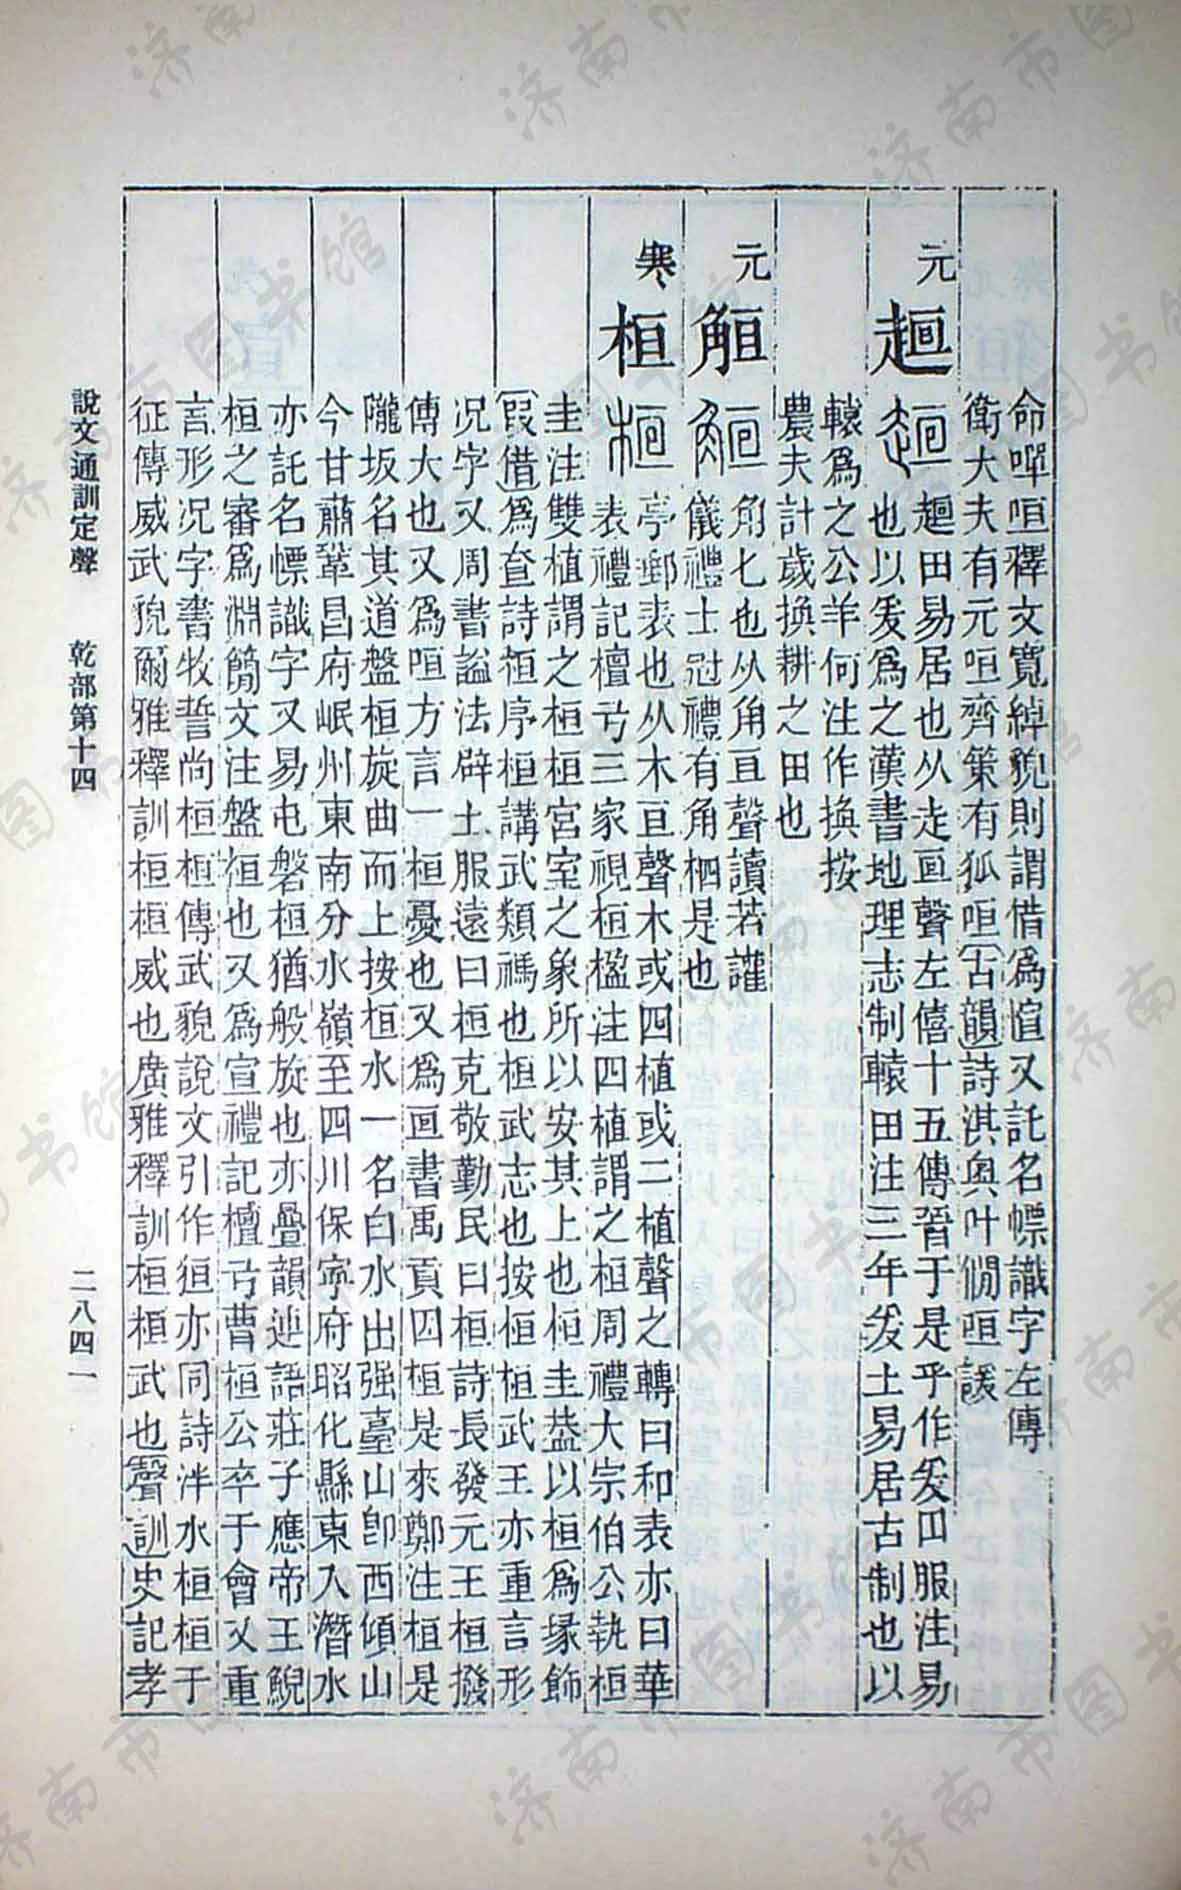 命嘽咺釋文寬綽貌則謂借爲愃又託名幖識字左傳
衛大夫有元咺齊策有狐咺古韻詩淇奧叶僩咺諼
元
趄
趄田易居也从走亘聲左僖十五傳晉于是乎作爰田服注易
也以爰爲之漢書地理志制轅田注三年爰土易居古制也以
轅爲之公羊何注作換按
農夫計歲換耕之田也
元
觛
角匕也从角亘聲讀若讙
儀禮士冠禮有角柶是也
寒
桓
亭郵表也从木亘聲木或四植或二植聲之轉曰和表亦曰華
表禮記檀弓三家視桓楹注四植謂之桓周禮大宗伯公執桓
圭注雙植謂之桓桓宮室之象所以安其上也桓圭葢以桓爲瑑飾
叚借爲奆詩桓序桓講武類禡也桓武志也按桓桓武王亦重言形
況字又周書謚法辟土服遠曰桓克敬勤民曰桓詩長發元王桓撥
傳大也又爲咺方言一桓憂也又爲亘書禹貢四桓是來鄭注桓是
隴坂名其道盤桓旋曲而上按桓水一名白水出强臺山卽西傾山
今甘肅鞏昌府岷州東南分水嶺至四川保寧府昭化縣東入潛水
亦託名幖識字又易屯磐桓猶般旋也亦疊韻連語莊子應帝王鯢
桓之審爲淵簡文注盤桓也又爲宣禮記檀弓曹桓公卒于會又重
言形況字書牧誓尚桓桓傳武貌說文引作狟亦同詩泮水桓桓于
征傳威武貌爾雅釋訓桓桓威也廣雅釋訓桓桓武也聲訓史記孝
說文通訓定聲　乾部第十四　二八四一
济南市图书馆